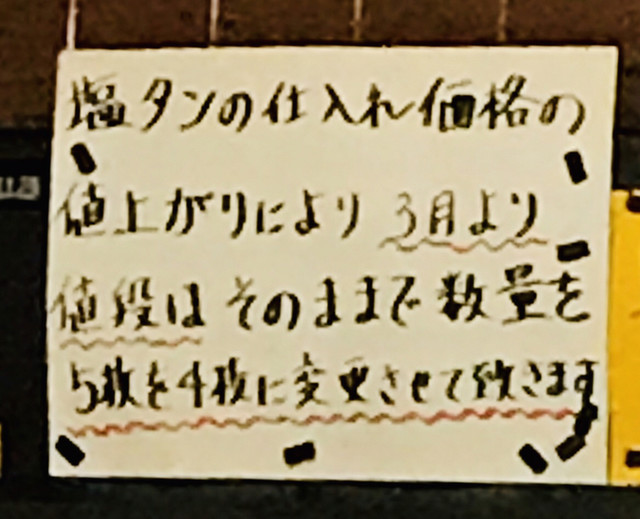 塩タンの仕入れ価格の
値上がりにより 3月より
値段は そのままで 数量を
5枚を4枚に変更させて致きます